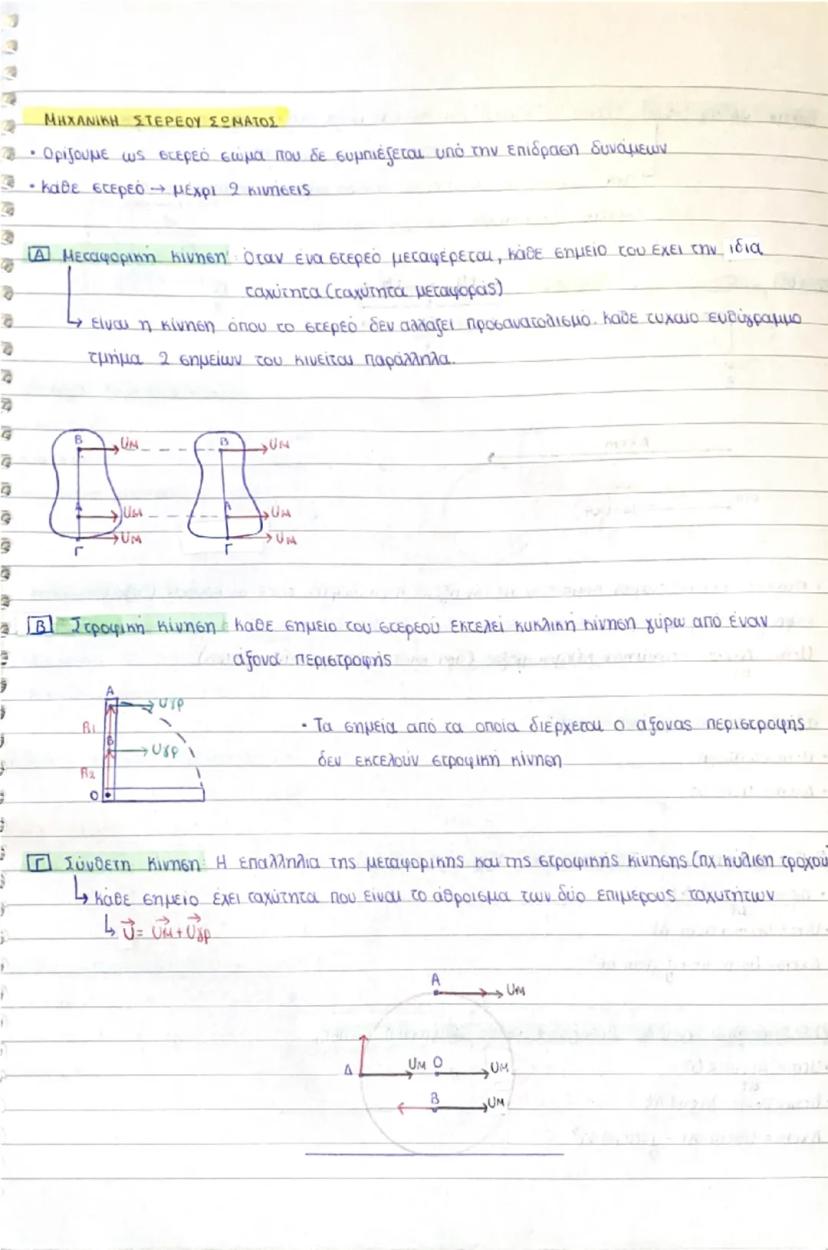 ΜΗΧΑΝΙΚΗ ΣΤΕΡΕΟΥ ΣΩΜΑΤΟΣ
• Ορίζουμε ως στερεό σώμα που δε συμπιέζεται υπό την επίδραση δυνάμεων
• Κάθε στερεό → μέχρι 2 κινήσεις
Α Μεταφορική κίνηση: Όταν ένα στερεό μεταφέρεται, κάθε σημείο του έχει την ίδια
ταχύτητα (ταχύτητα μεταφοράς)
↳ είναι η κίνηση όπου το στερεό δεν αλλάζει προσανατολισμό. Κάθε τυχαίο ευθύγραμμο
τμήμα 2 σημείων του κινείται παράλληλα.
Β UM Β UM
Α UM Α UM
Γ UM Γ UM
Β Στροφική κίνηση: Κάθε σημείο του στερεού εκτελεί κυκλική κίνηση γύρω από έναν
άξονα περιστροφής
Α Uγρ
R1
Β Uγρ
R2
Ο
• Τα σημεία από τα οποία διέρχεται ο άξονας περιστροφής
δεν εκτελούν στροφική κίνηση
Γ Σύνθετη κίνηση: Η επαλληλία της μεταφορικής και της στροφικής κίνησης (πχ κύλιση τροχού
↳ κάθε σημείο έχει ταχύτητα που είναι το άθροισμα των δύο επιμέρους ταχυτήτων
↳ U = UM + Uγρ
Α UM
Δ UM Ο UM
Β UM